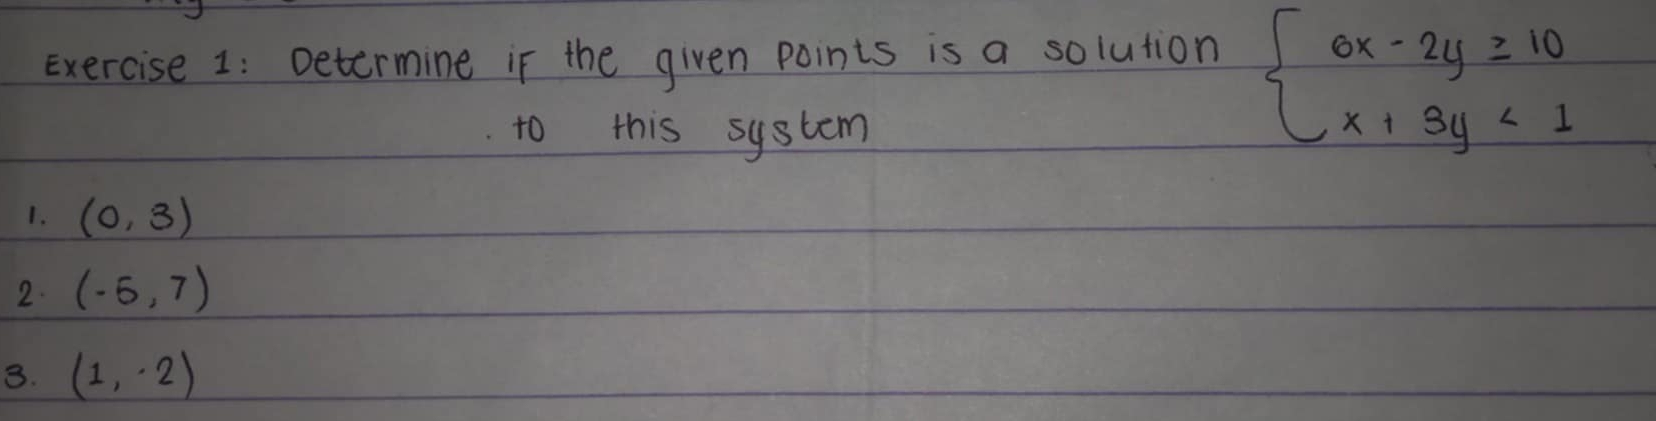 Exercise 1: Determine if the given points is a solution { 6x - 2y ≥ 10
to this system x + 3y < 1
1. (0, 3)
2. (-5, 7)
3. (1, -2)